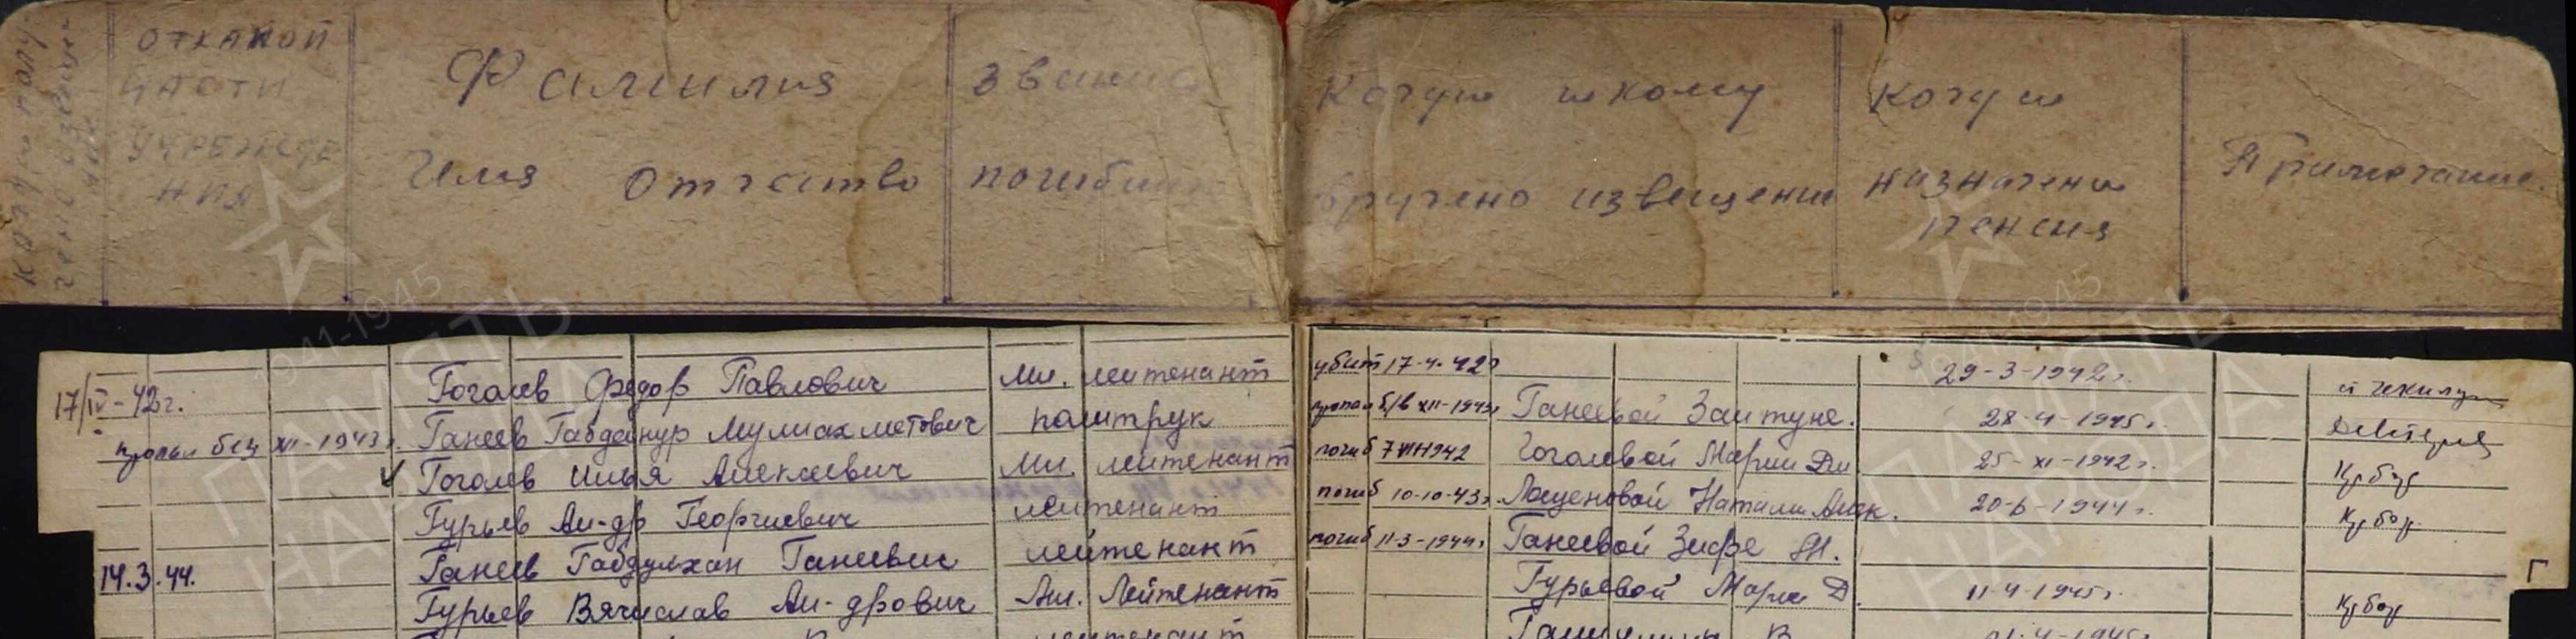 Когда полу
чено извеще
ние
ОТ КАКОЙ
ЧАСТИ
УЧРЕЖДЕ
НИЯ
Фамилия
Имя Отчество
Звание
погибши
Когда и кому
вручено извещение
Когда и
назначена
пенсия
Примечание.
17/IV-42г. Гоголев Федор Павлович Мл. лейтенант убит 17-4-42г 29-3-1942г.
пропал без XII-1943г. Ганеев Габденур Мулиахметович политрук пропал б/в XII-1943г Ганеевой Зайтуне. 28-4-1945г.
Гоголев Илья Алексеевич Мл. лейтенант погиб 7 1942 Гоголевой Марии Дм 25-XI-1942г.
Гурьев Ал-др Георгиевич лейтенант погиб 10-10-43г. Натали Алек. 20-6-1944г.
14.3.44. Ганеев Габдулхан Ганеевич лейтенант погиб 11-3-1944г Ганеевой Зифе Г
Гурьев Вячеслав Ал-дрович Мл. Лейтенант Гурьевой Марии Д. 11-4-1945г.
лейтенант В
1941-1945
ПАМЯТЬ
НАРОДА
1941-1945
ПАМЯТЬ
НАРОДА